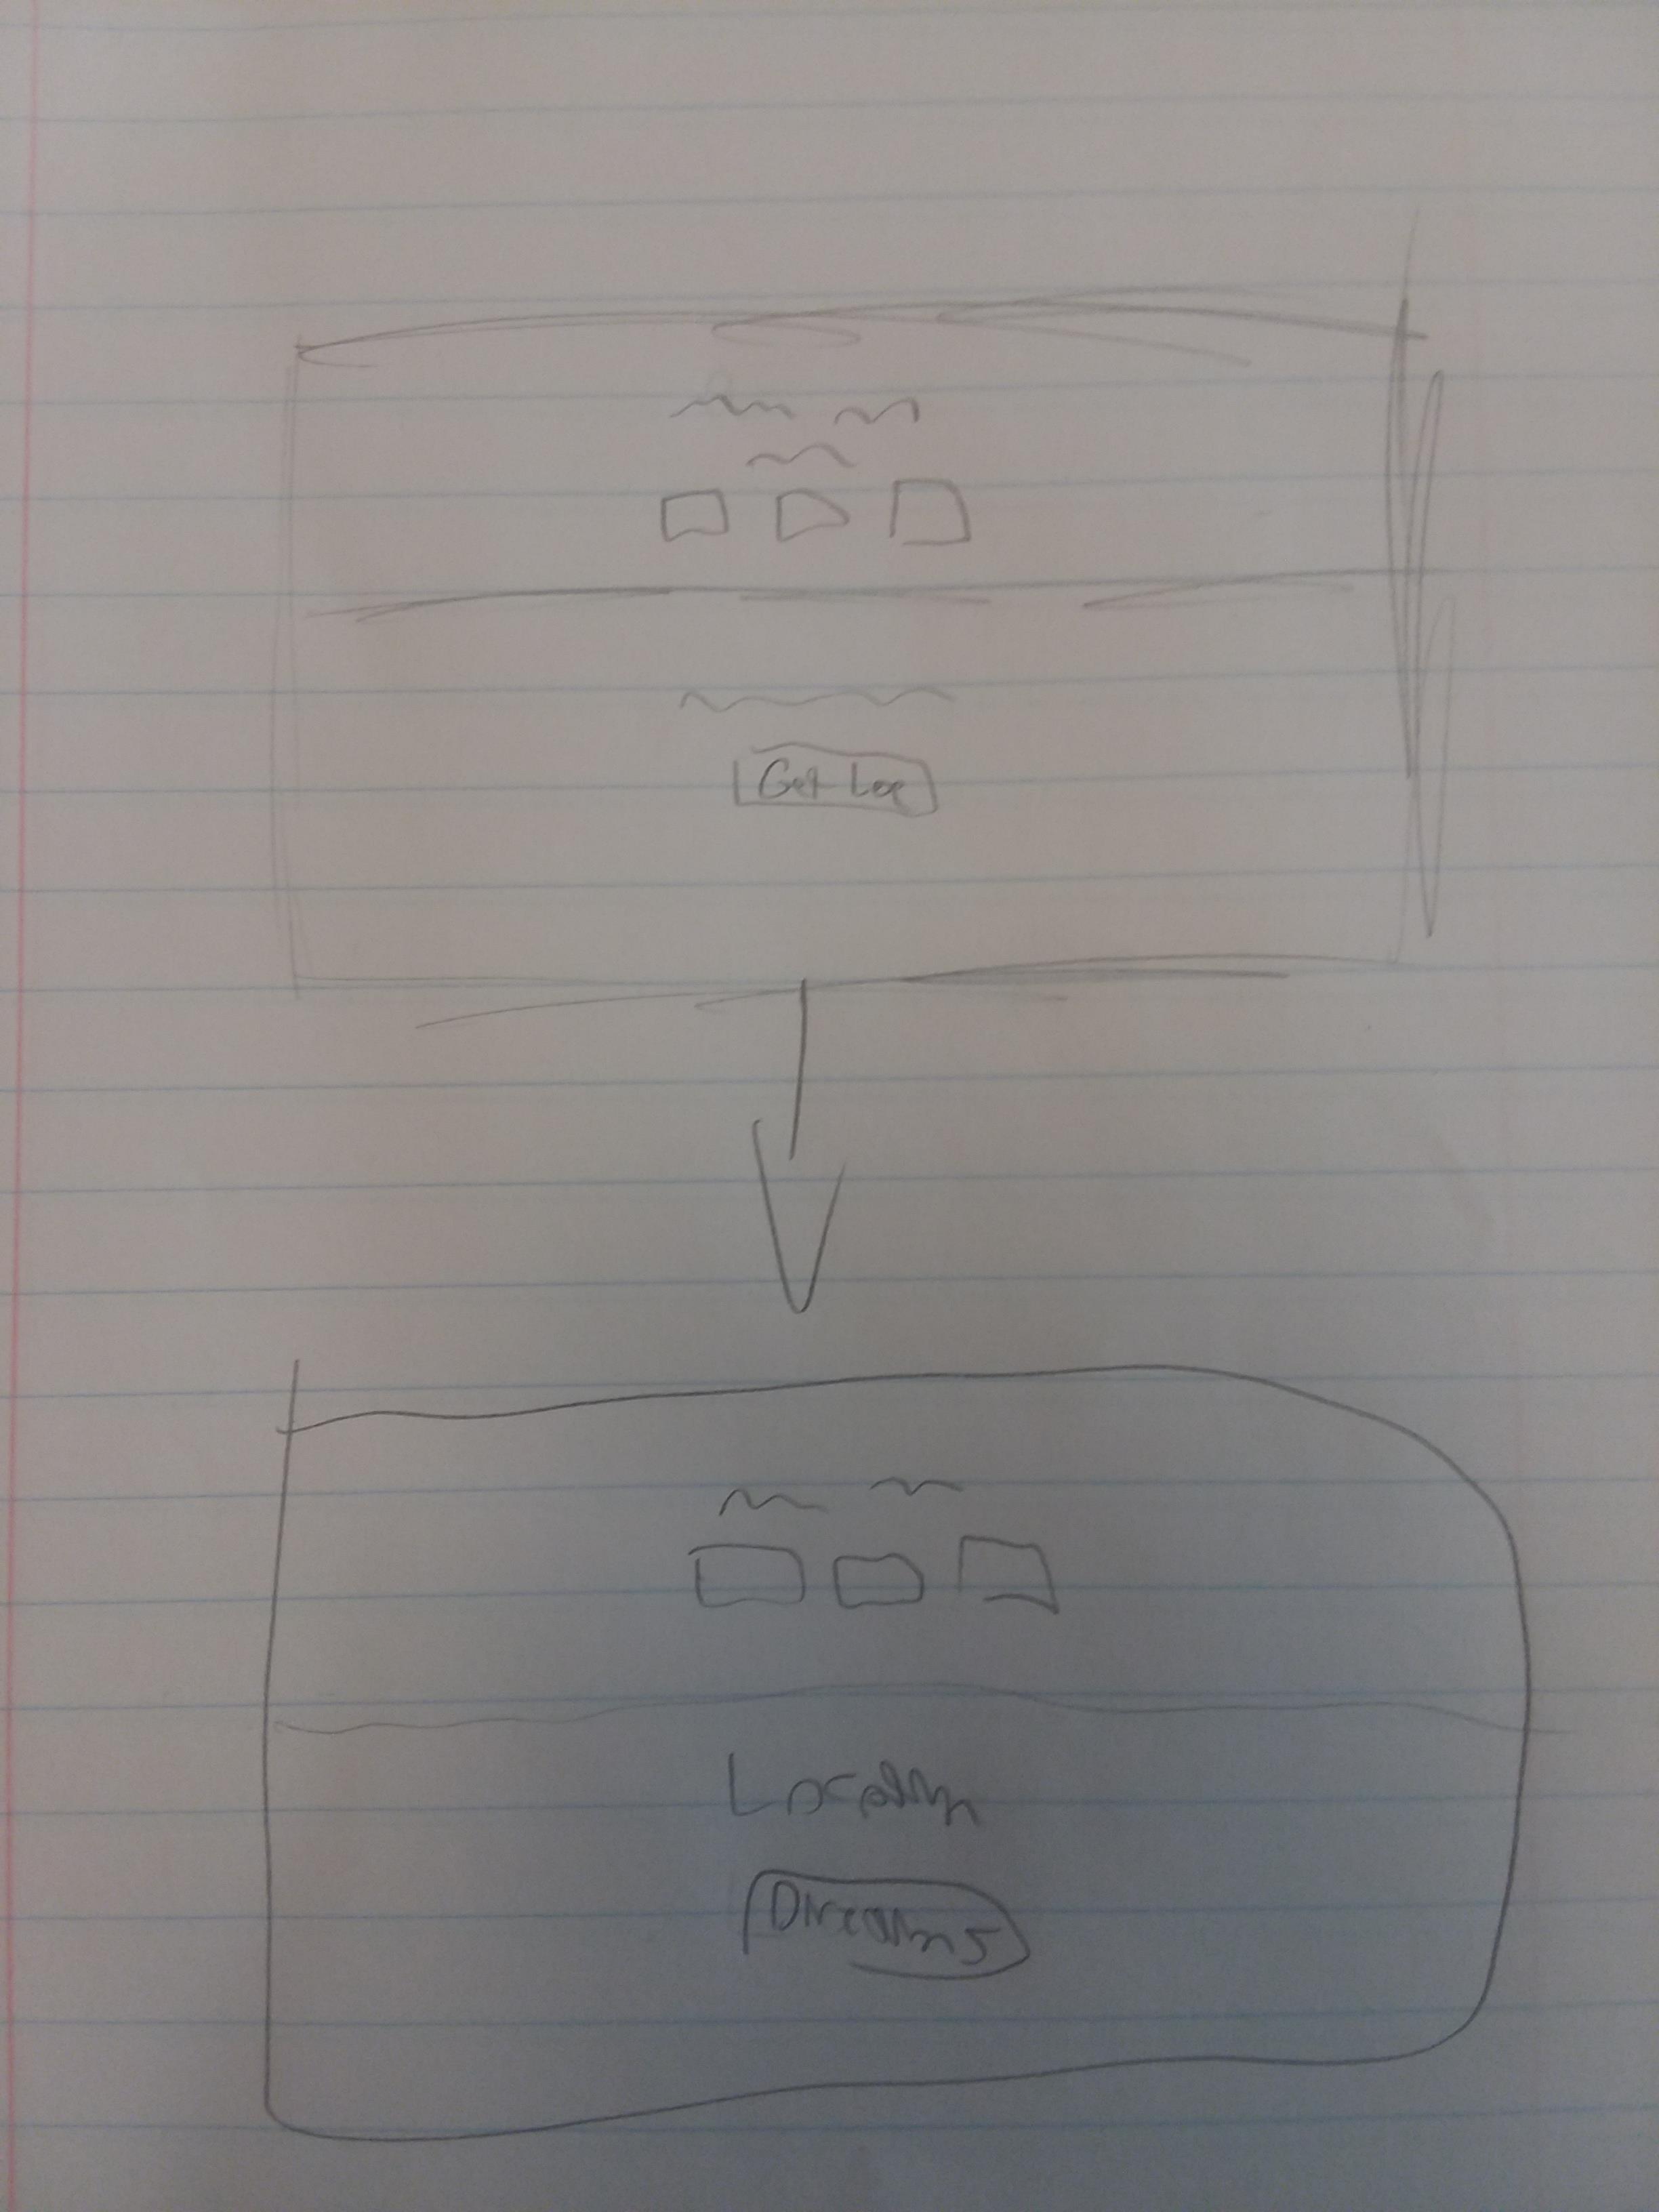 Get Loc
Location
Directions